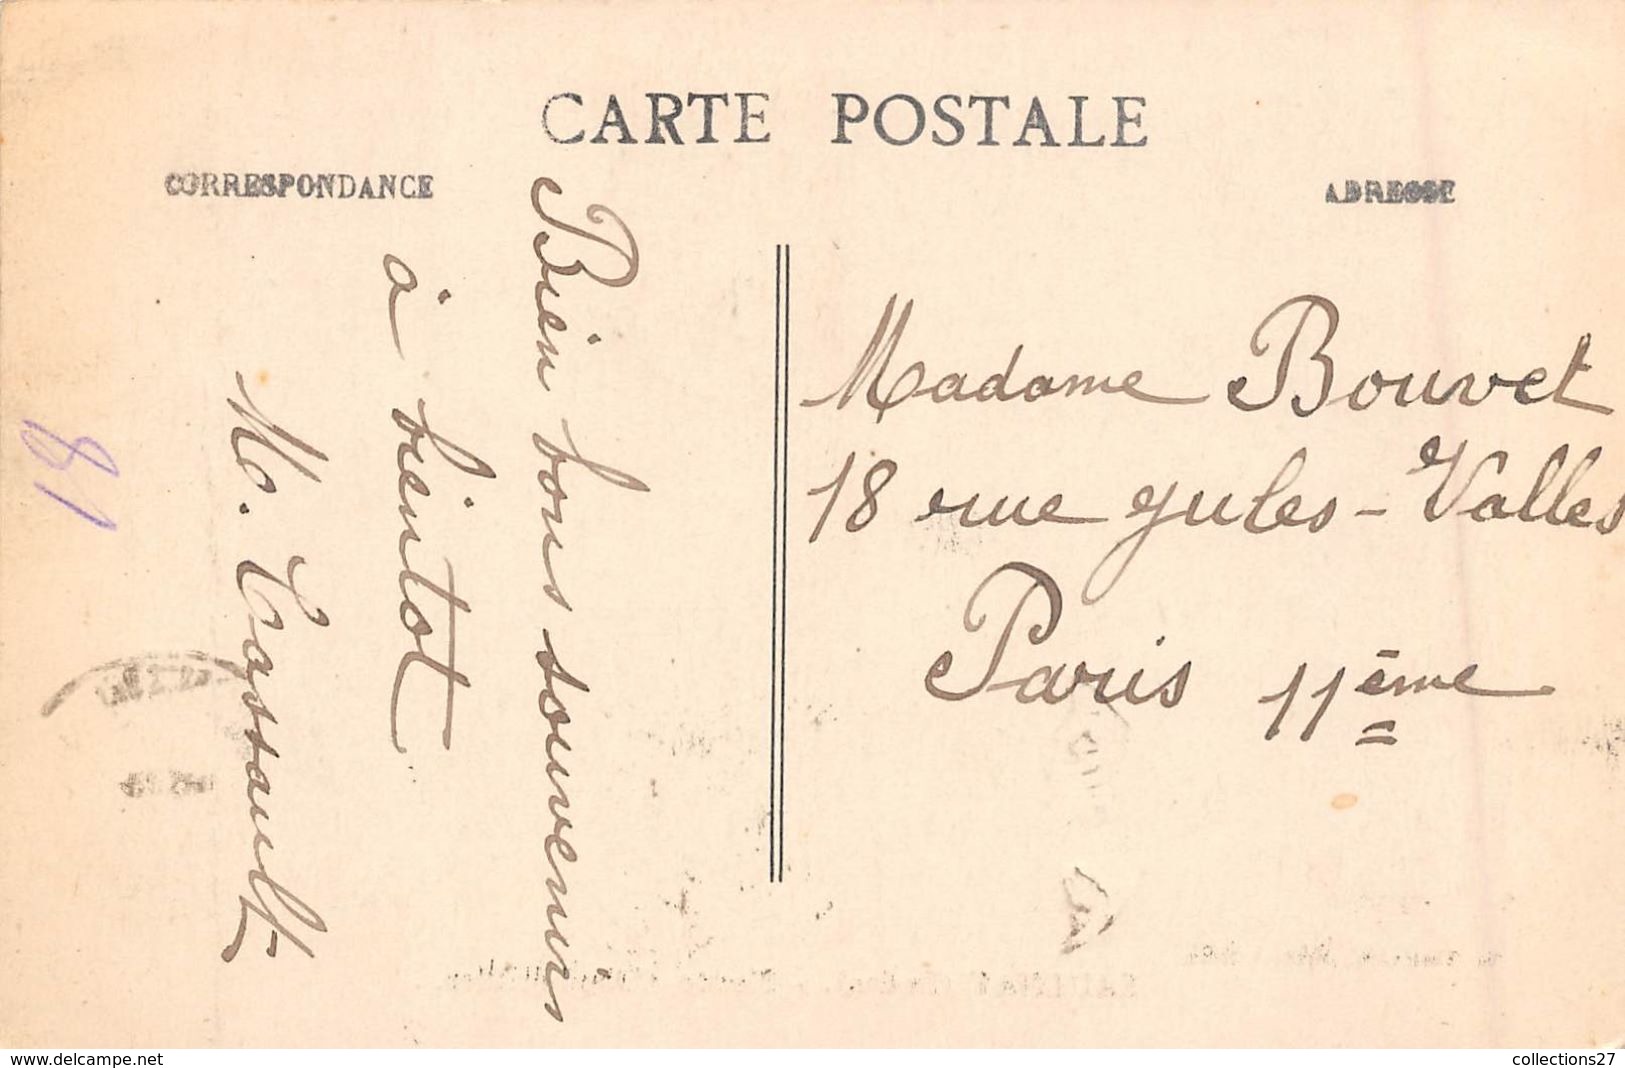 CARTE POSTALE
CORRESPONDANCE
ADRESSE
Bien bons souvenirs
à bientot
M. Cassault
Madame Bouvet
18 rue Jules-Valles
Paris 11ème
81
www.delcampe.net
collections27